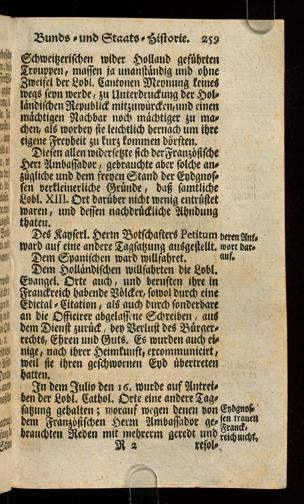 Bunds- und Staats-Historie. 259
Schweitzerischen wider Holland geführten
Trouppen, massen ja unanständig und ohne
Zweifel der Lobl. Cantonen Meynung keines
wegs seyn werde, zu Unterdruckung der Hol-
ländischen Republick mitzuwürcken, und einen
mächtigen Nachbar noch mächtiger zu ma-
chen, als worbey sie leichtlich hernach um ihre
eigene Freyheit zu kurz kommen dörften.
Diesen allen widersetzte sich der Französische
Herr Ambassador, gebrauchte aber solche an-
zügliche und dem freyen Stand der Eydgnos-
sen verkleinerliche Gründe, daß samtliche
Lobl. XIII. Ort darüber nicht wenig entrüstet
waren, und dessen nachdrückliche Ahndung
thaten.
Des Kayserl. Herrn Botschafters Petitum
ward auf eine andere Tagsatzung ausgestellt.
deren Ant-
wort dar-
auf.
Dem Spanischen ward willfahret.
Dem Holländischen willfahrten die Lobl.
Evangel. Orte auch, und berufften ihre in
Franckreich habende Völcker, sowol durch eine
Edictal-Citation, als auch durch sonderbare
an die Officirer abgelassene Schreiben, aus
dem Dienst zurück, bey Verlust des Bürger-
rechts, Ehren und Guts. Es wurden auch ei-
nige, nach ihrer Heimkunft, excommuniciert,
weil sie ihren geschwornen Eyd übertreten
hatten.
In dem Julio den 16. wurde auf Antrei-
ben der Lobl. Cathol. Orte eine andere Tag-
satzung gehalten; worauf wegen denen von
dem Französischen Herrn Ambassador ge-
brauchten Reden mit mehrerm geredt und
Eydgnos-
sen trauen
Franck-
reich nicht,
R 2 resol-